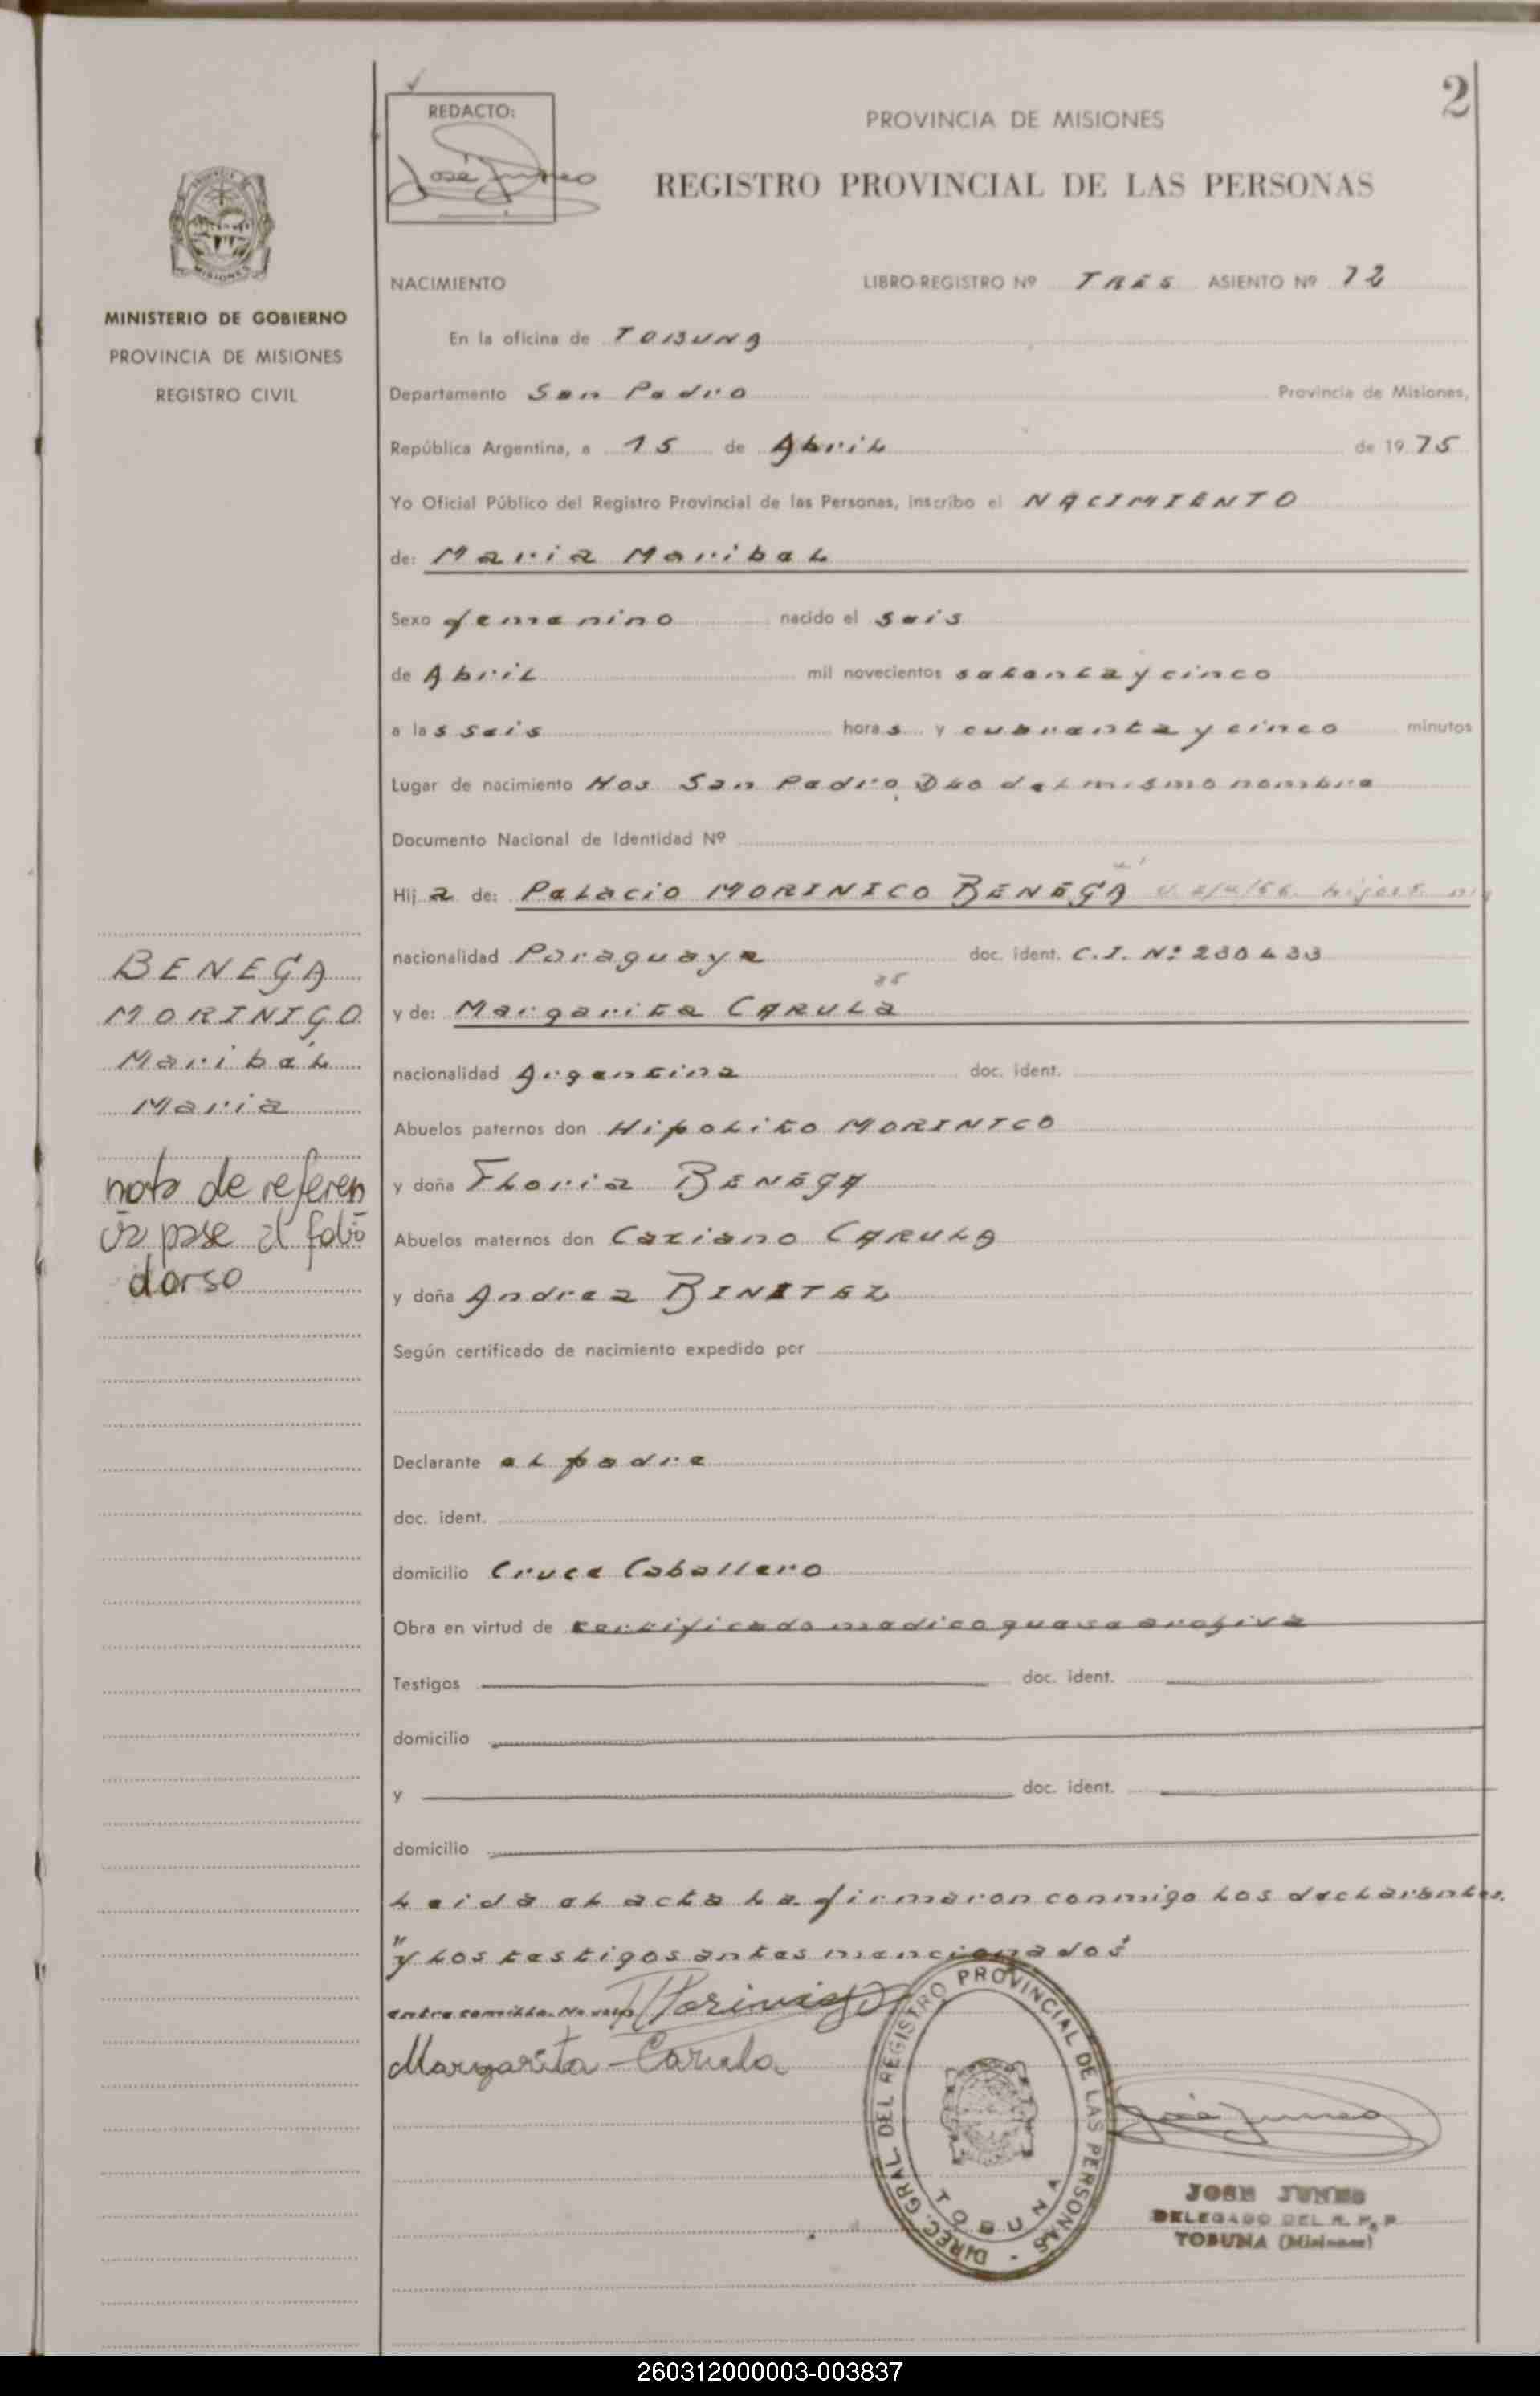 2
REDACTO:
José Juneo
PROVINCIA DE MISIONES
REGISTRO PROVINCIAL DE LAS PERSONAS
MISIONES
MINISTERIO DE GOBIERNO
PROVINCIA DE MISIONES
REGISTRO CIVIL
NACIMIENTO LIBRO-REGISTRO Nº TRES ASIENTO Nº 72
En la oficina de TOBUNA
Departamento San Pedro Provincia de Misiones,
República Argentina, a 15 de Abril de 1975
Yo Oficial Público del Registro Provincial de las Personas, inscribo el NACIMIENTO
de: Maria Maribel
Sexo femenino nacido el seis
de Abril mil novecientos setenta y cinco
a las seis horas y cuarenta y cinco minutos
Lugar de nacimiento Hos San Pedro, Dto del mismo nombre
Documento Nacional de Identidad Nº
Hija de: Palacio MORINICO BENEGA
nacionalidad Paraguaya doc. ident. C.I. Nº 230433
y de: Margarita CARULA
nacionalidad Argentina doc. ident.
Abuelos paternos don Hipolito MORINICO
y doña Floria BENEGA
Abuelos maternos don Caziano CARULA
y doña Andrea BINITEZ
Según certificado de nacimiento expedido por
Declarante el padre
doc. ident.
domicilio Cruce Caballero
Obra en virtud de certificado medico que se archiva
Testigos doc. ident.
domicilio
y doc. ident.
domicilio
Leida el acta la firmaron conmigo los declarantes.
"y los testigos antes mencionados"
entre comilla. No vale Morinigo
Margarita Carula
BENEGA
MORINIGO
Maribel
Maria
nota de referen
cia pase al folio
dorso
DIREC. GRAL. DEL REGISTRO PROVINCIAL DE LAS PERSONAS -
TOBUNA
José Juneo
JOSE JUNEO
DELEGADO DEL R. P. P.
TOBUNA (Misiones)
260312000003-003837